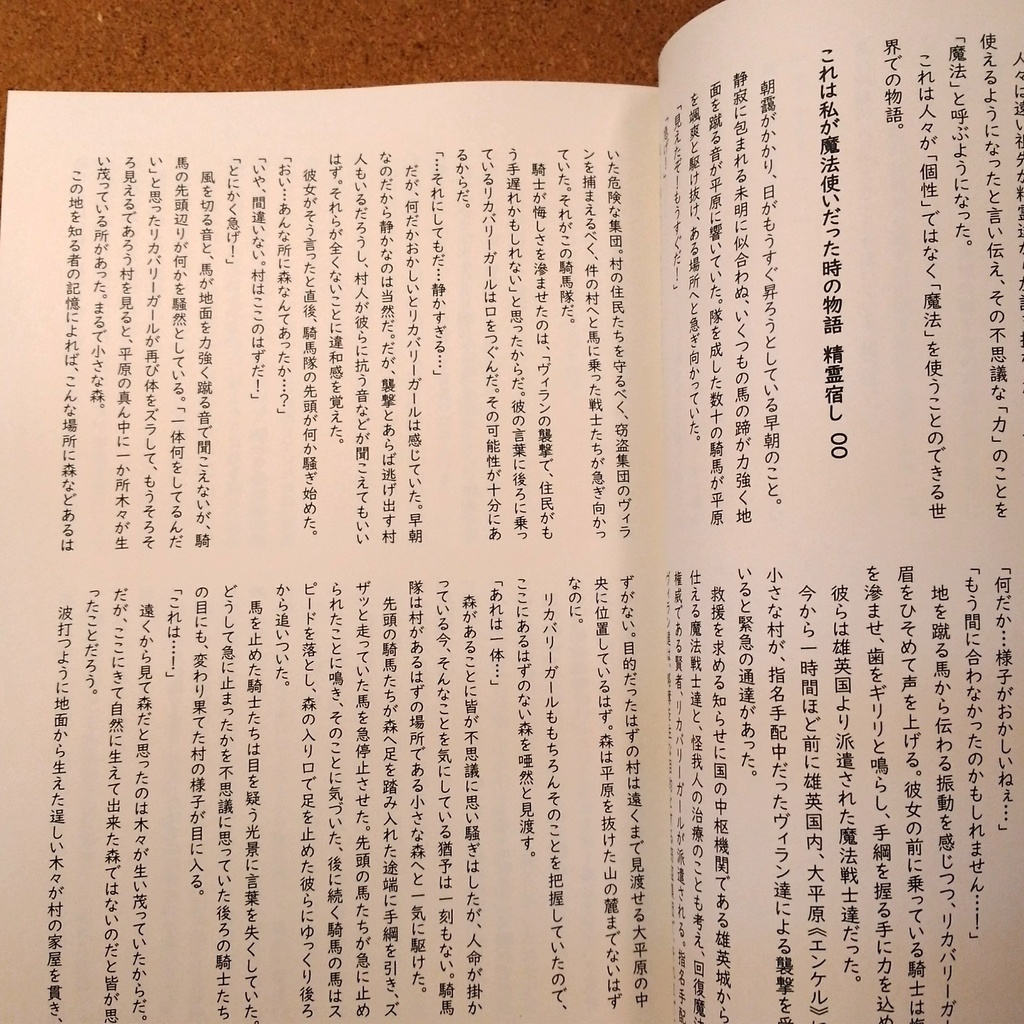 使えるようになったと言い伝え、その不思議な「力」のことを
「魔法」と呼ぶようになった。
これは人々が「個性」ではなく「魔法」を使うことのできる世
界での物語。
これは私が魔法使いだった時の物語 精霊宿し 〇〇
朝靄がかかり、日がもうすぐ昇ろうとしている早朝のこと。
静寂に包まれる未明に似合わぬ、いくつもの馬の蹄が力強く地
面を蹴る音が平原に響いていた。隊を成した数十の騎馬が平原
を颯爽と駆け抜け、ある場所へと急ぎ向かっていた。
「見えたぞ!もうすぐだ!」
「何だか…様子がおかしいねぇ…」
「もう間に合わなかったのかもしれません…!」
地を蹴る馬から伝わる振動を感じつつ、リカバリーガ
眉をひそめて声を上げる。彼女の前に乗っている騎士は悔
を滲ませ、歯をギリリと鳴らし、手綱を握る手に力を込め
彼らは雄英国より派遣された魔法戦士達だった。
今から一時間ほど前に雄英国内、大平原《エンケル》に
小さな村が、指名手配中だったヴィラン達による襲撃を受
いると緊急の通達があった。
救援を求める知らせに国の中枢機関である雄英城から
仕える魔法戦士達と、怪我人の治療のことも考え、回復魔法
権威である賢者、リカバリーガールが派遣される。指名手配
いた危険な集団。村の住民たちを守るべく、窃盗集団のヴィラ
ンを捕まえるべく、件の村へと馬に乗った戦士たちが急ぎ向かっ
ていた。それがこの騎馬隊だ。
騎士が悔しさを滲ませたのは、「ヴィランの襲撃で、住民がも
う手遅れかもしれない」と思ったからだ。彼の言葉に後ろに乗っ
ているリカバリーガールは口をつぐんだ。その可能性が十分にあ
るからだ。
「…それにしてもだ…静かすぎる…」
だが、何だかおかしいとリカバリーガールは感じていた。早朝
なのだから静かなのは当然だ。だが、襲撃とあらば逃げ出す村
人もいるだろうし、村人が彼らに抗う音などが聞こえてもいい
はず。それらが全くないことに違和感を覚えた。
彼女がそう言ったと直後、騎馬隊の先頭が何か騒ぎ始めた。
「おい…あんな所に森なんてあったか…?」
「いや、間違いない。村はここのはずだ!」
「とにかく急げ!」
風を切る音と、馬が地面を力強く蹴る音で聞こえないが、騎
馬の先頭辺りが何かを騒然としている。「一体何をしてるんだ
い」と思ったリカバリーガールが再び体をズラして、もうそろそ
ろ見えるであろう村を見ると、平原の真ん中に一か所木々が生
い茂っている所があった。まるで小さな森。
この地を知る者の記憶によれば、こんな場所に森などあるは
ずがない。目的だったはずの村は遠くまで見渡せる大平原の中
央に位置しているはず。森は平原を抜けた山の麓までないはず
なのに。
リカバリーガールももちろんそのことを把握していたので、
ここにあるはずのない森を唖然と見渡す。
「あれは一体…」
森があることに皆が不思議に思い騒ぎはしたが、人命が掛か
っている今、そんなことを気にしている猶予は一刻もない。騎馬
隊は村があるはずの場所である小さな森へと一気に駆けた。
先頭の騎馬たちが森へ足を踏み入れた途端に手綱を引き、ズ
ザッと走っていた馬を急停止させた。先頭の馬たちが急に止め
られたことに鳴き、そのことに気づいた、後に続く騎馬の馬はス
ピードを落とし、森の入り口で足を止めた彼らにゆっくり後ろ
から追いついた。
馬を止めた騎士たちは目を疑う光景に言葉を失くしていた。
どうして急に止まったかを不思議に思っていた後ろの騎士たち
の目にも、変わり果てた村の様子が目に入る。
「これは…!」
遠くから見て森だと思ったのは木々が生い茂っていたからだ。
だが、ここにきて自然に生えて出来た森ではないのだと皆が思
ったことだろう。
波打つように地面から生えた逞しい木々が村の家屋を貫き、